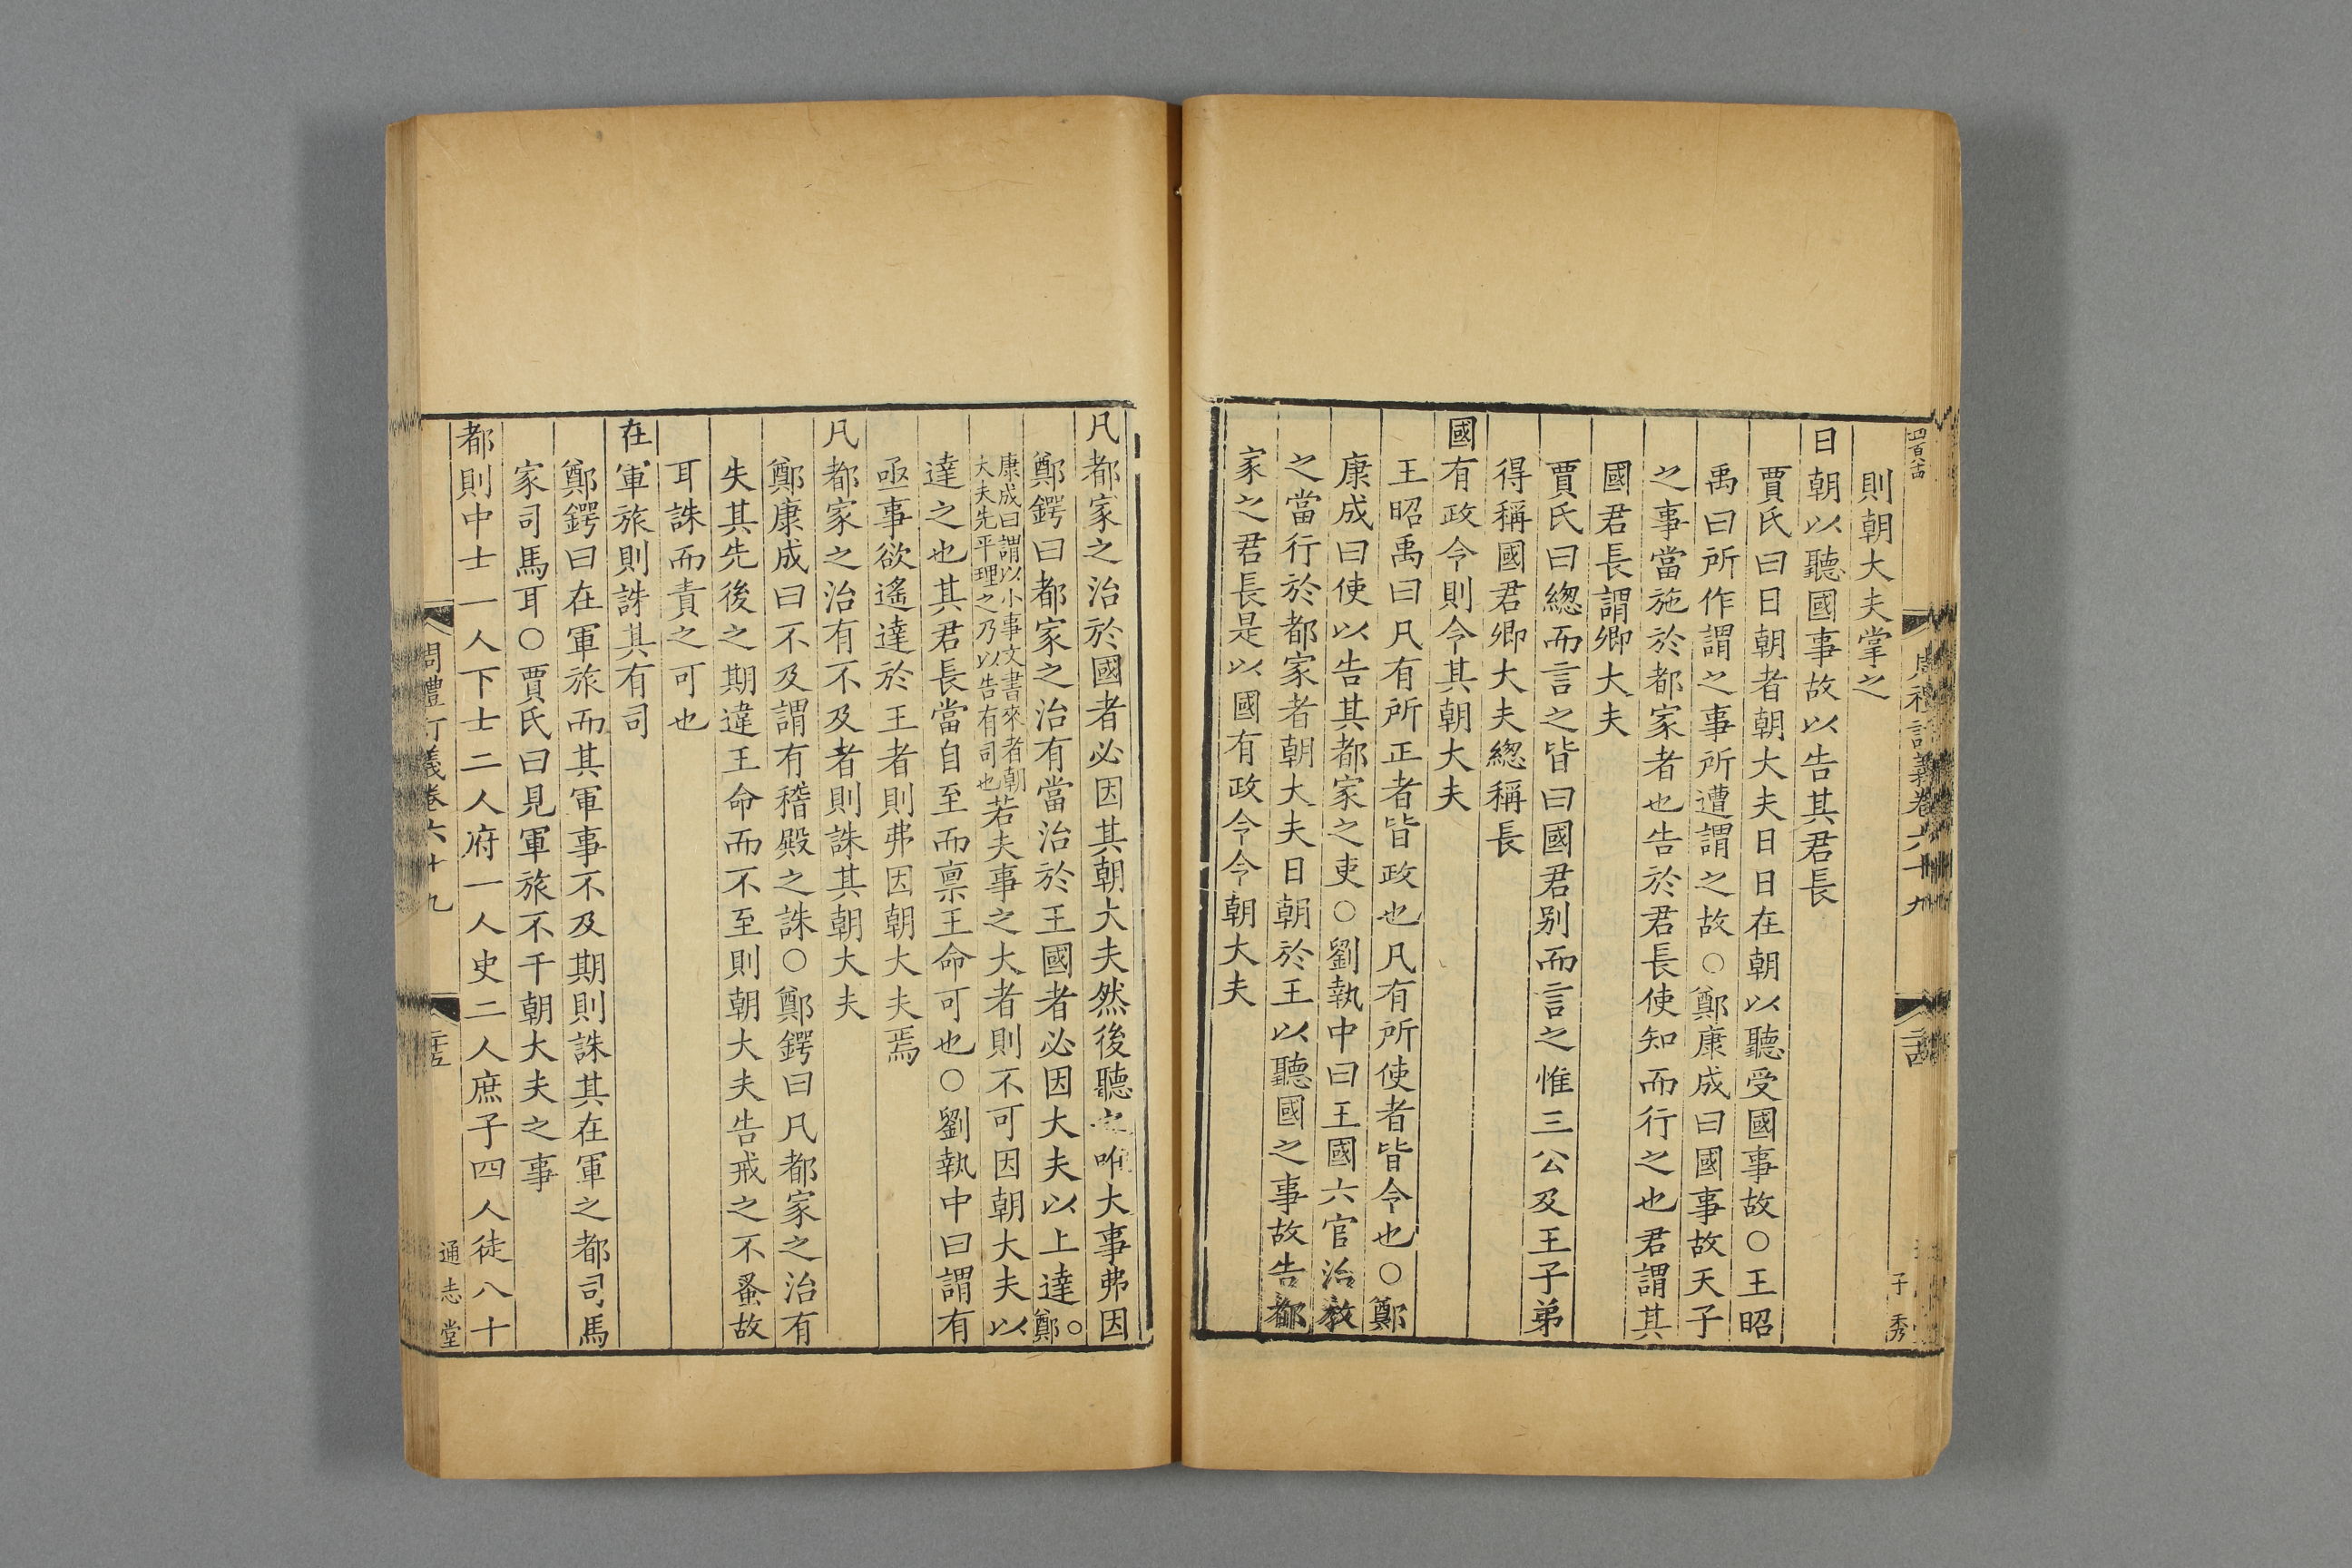 則朝大夫掌之
日朝以聽國事故以告其君長
賈氏曰日朝者朝大夫日日在朝以聽受國事故○王昭
禹曰所作謂之事所遭謂之故○鄭康成曰國事故天子
之事當施於都家者也告於君長使知而行之也君謂其
國君長謂卿大夫
賈氏曰緫而言之皆曰國君别而言之惟三公及王子弟
得稱國君卿大夫緫稱長
國有政令則令其朝大夫
王昭禹曰凡有所正者皆政也凡有所使者皆令也○鄭
康成曰使以告其都家之吏○劉執中曰王國六官治教
之當行於都家者朝大夫日朝於王以聽國之事故告都
家之君長是以國有政令令朝大夫
凡都家之治於國者必因其朝大夫然後聽之唯大事弗因
鄭鍔曰都家之治有當治於王國者必因大夫以上達○鄭
康成曰謂以小事文書來者朝
大夫先平理之乃以告有司也若夫事之大者則不可因朝大夫以
達之也其君長當自至而禀王命可也○劉執中曰謂有
亟事欲遙達於王者則弗因朝大夫焉
凡都家之治有不及者則誅其朝大夫
鄭康成曰不及謂有稽殿之誅○鄭鍔曰凡都家之治有
失其先後之期違王命而不至則朝大夫告戒之不蚤故
耳誅而責之可也
在軍旅則誅其有司
鄭鍔曰在軍旅而其軍事不及期則誅其在軍之都司馬
家司馬耳○賈氏曰見軍旅不干朝大夫之事
都則中士一人下士二人府一人史二人庶子四人徒八十
周禮訂義卷六十九
通志堂
子秀